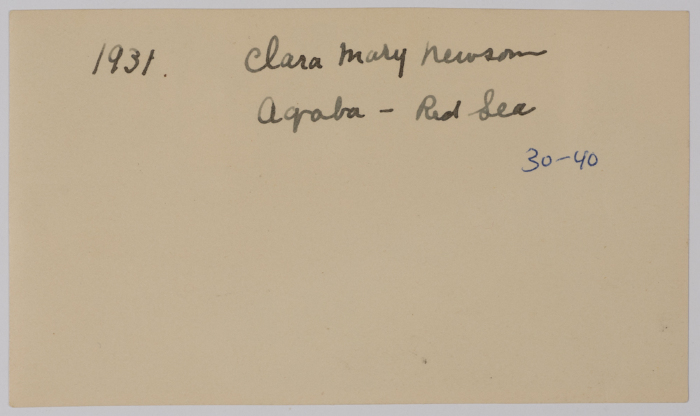 1931. Clara Mary Newsom
Aqaba - Red Sea
30-40